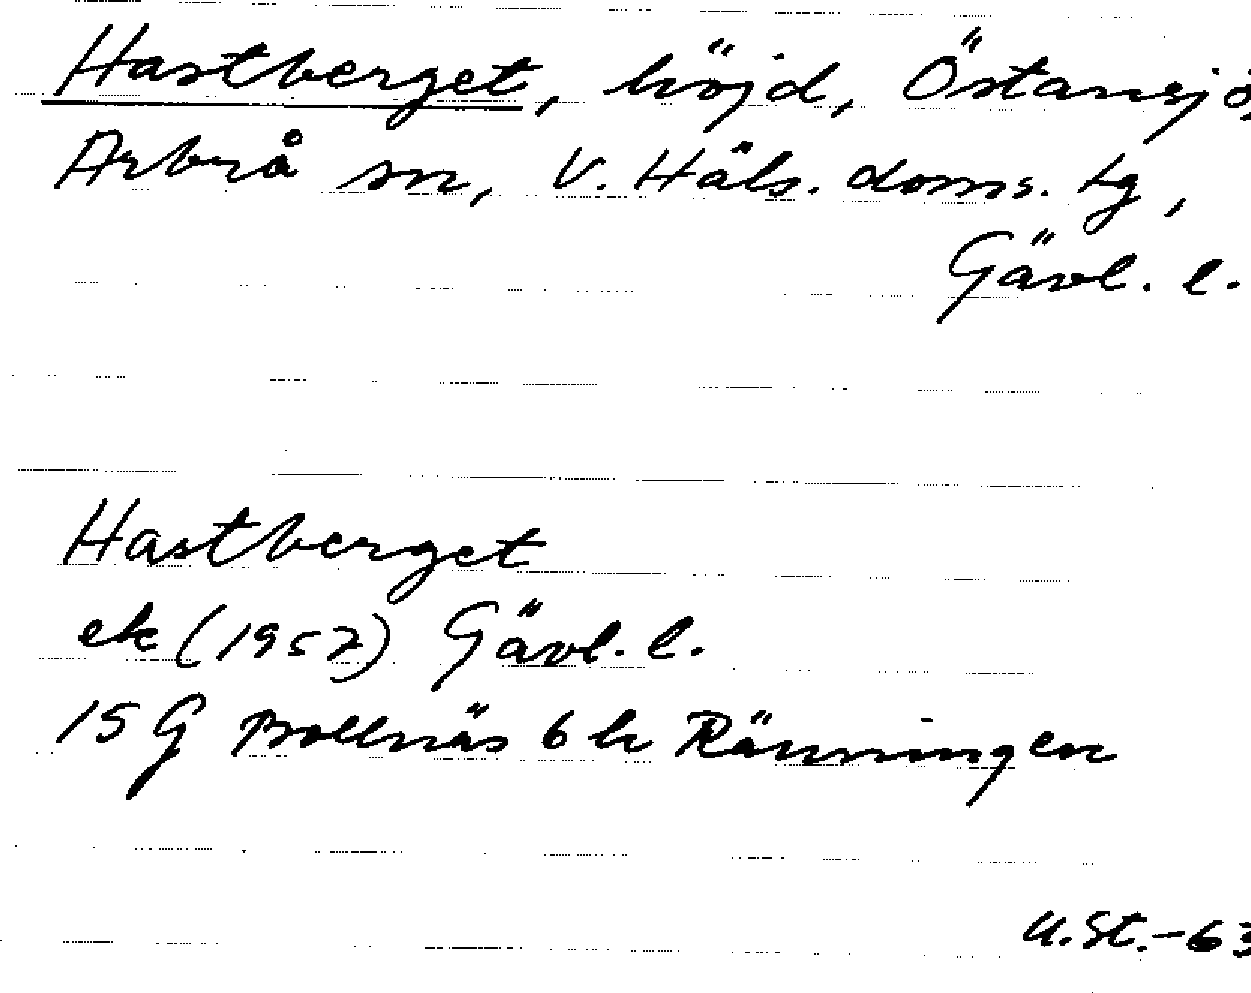 Hastberget, höjd, Östansjö,
Arbrå sn, V. Häls. doms. tg,
Gävl. l.
Hastberget
ek (1957) Gävl. l.
15 G Bollnäs 6 h Ränningen
U. St. -63